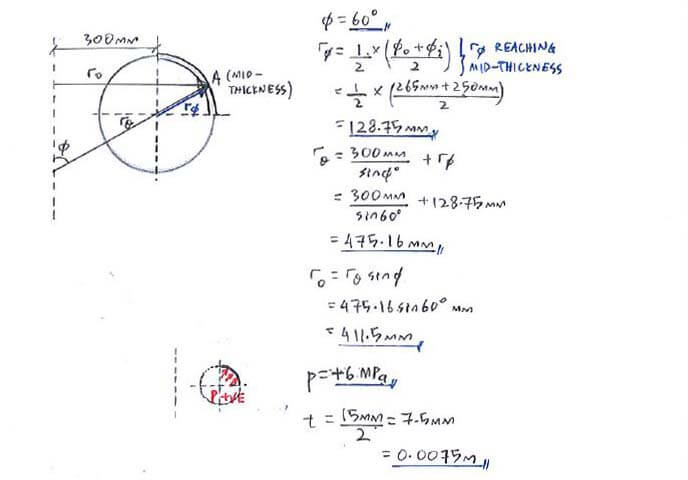 300MM
r₀
A (MID-
THICKNESS)
rφ
rθ
φ
φ = 60°
rφ = 1/2 × (ϕ₀ + ϕᵢ / 2) } rφ REACHING
MID-THICKNESS
= 1/2 × (265MM + 250MM / 2)
= 128.75MM
rθ = 300MM / sinφ + rφ
= 300MM / sin60° + 128.75MM
= 475.16MM
r₀ = rθ sinφ
= 475.16 sin60° MM
= 411.5MM
P +VE
p = +6 MPa
t = 15MM / 2 = 7.5MM
= 0.0075M